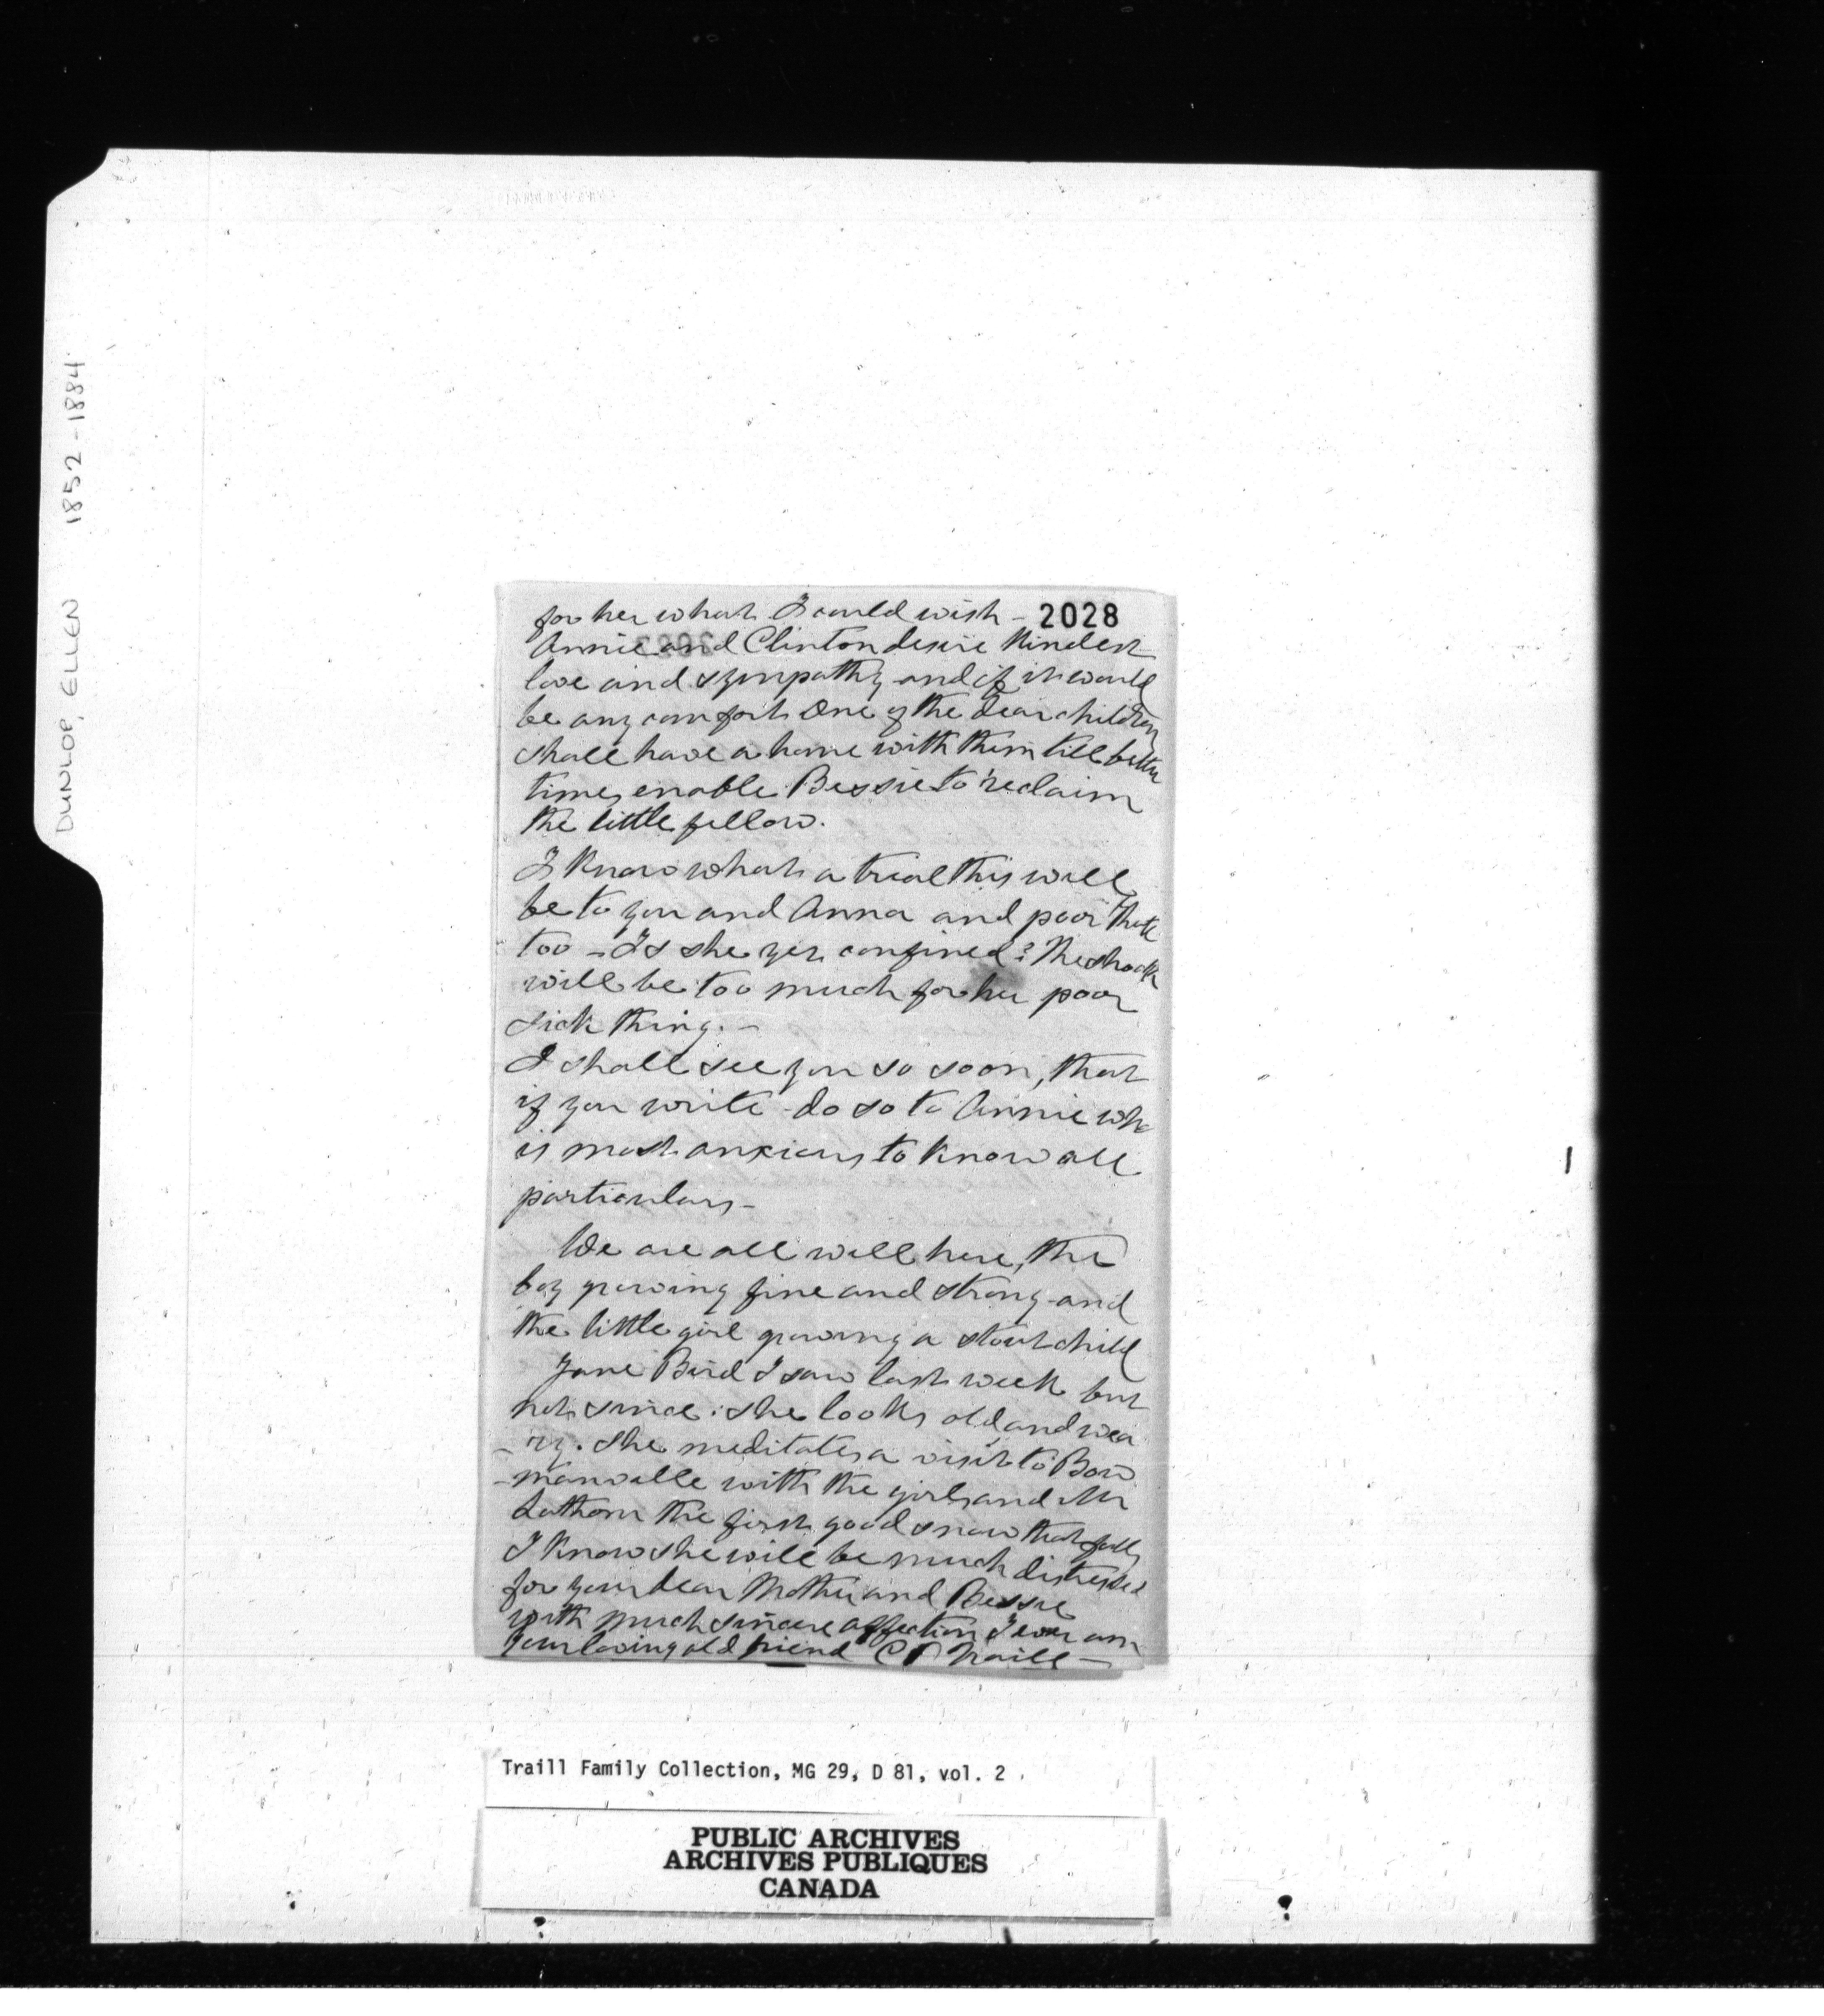 DUNLOP, ELLEN 1852-1884
2028
for her what I could wish -
Annie and Clinton desire kindest
love and sympathy and if it would
be any comfort One of the dear children
shall have a home with them till better
times enable Bessie to reclaim
the little fellow.
I know what a trial this will
be to you and Anna and poor
too - Is she yet confined? The shock
will be too much for her poor
sick thing. -
I shall see you so soon, that
if you write do so to Annie who
is most anxious to know all
particulars -
We are all well here, the
boy growing fine and strong and
the little girl growing a stout child
Jane Bird I saw last week but
not since: she looks old and wea
-ry. She meditates a visit to Bow
-manville with the girls and Mr
Lathom the first good snow that falls
I know she will be much distressed
for your dear Mother and Bessie
with much sincere affection I ever am
your loving old friend C P Traill -
Traill Family Collection, MG 29, D 81, vol. 2
PUBLIC ARCHIVES
ARCHIVES PUBLIQUES
CANADA